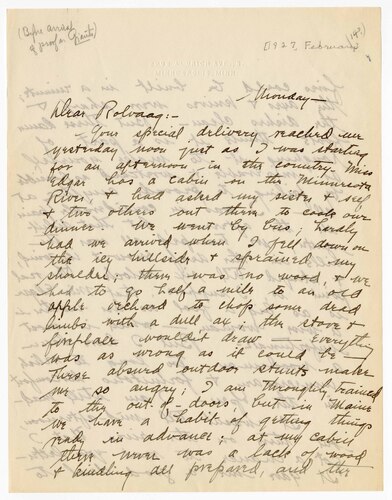 (Before arrival
of proof of Giants)
[1927 February (14?)
Monday—
Dear Rolvaag:-
Your special delivery reached me
yesterday noon just as I was starting
for an afternoon in the country. Miss
Edgar has a cabin on the Minnesota
River, & had asked my sister & self
& two others out there to cook our
dinner. We went by bus; hardly
had we arrived when I fell down on
the icy hillside & sprained my
shoulder; there was no wood, & we
had to go half a mile to an old
apple orchard to chop some dead
limbs with a dull ax; the stove &
fireplace wouldn't draw — everything
was as wrong as it could be —
These absurd outdoor stunts make
me so angry; I am throughly trained
to the out of doors, but in Maine
we have a habit of getting things
ready in advance; at my cabin
there never was a lack of wood
& kindling all prepared, and the